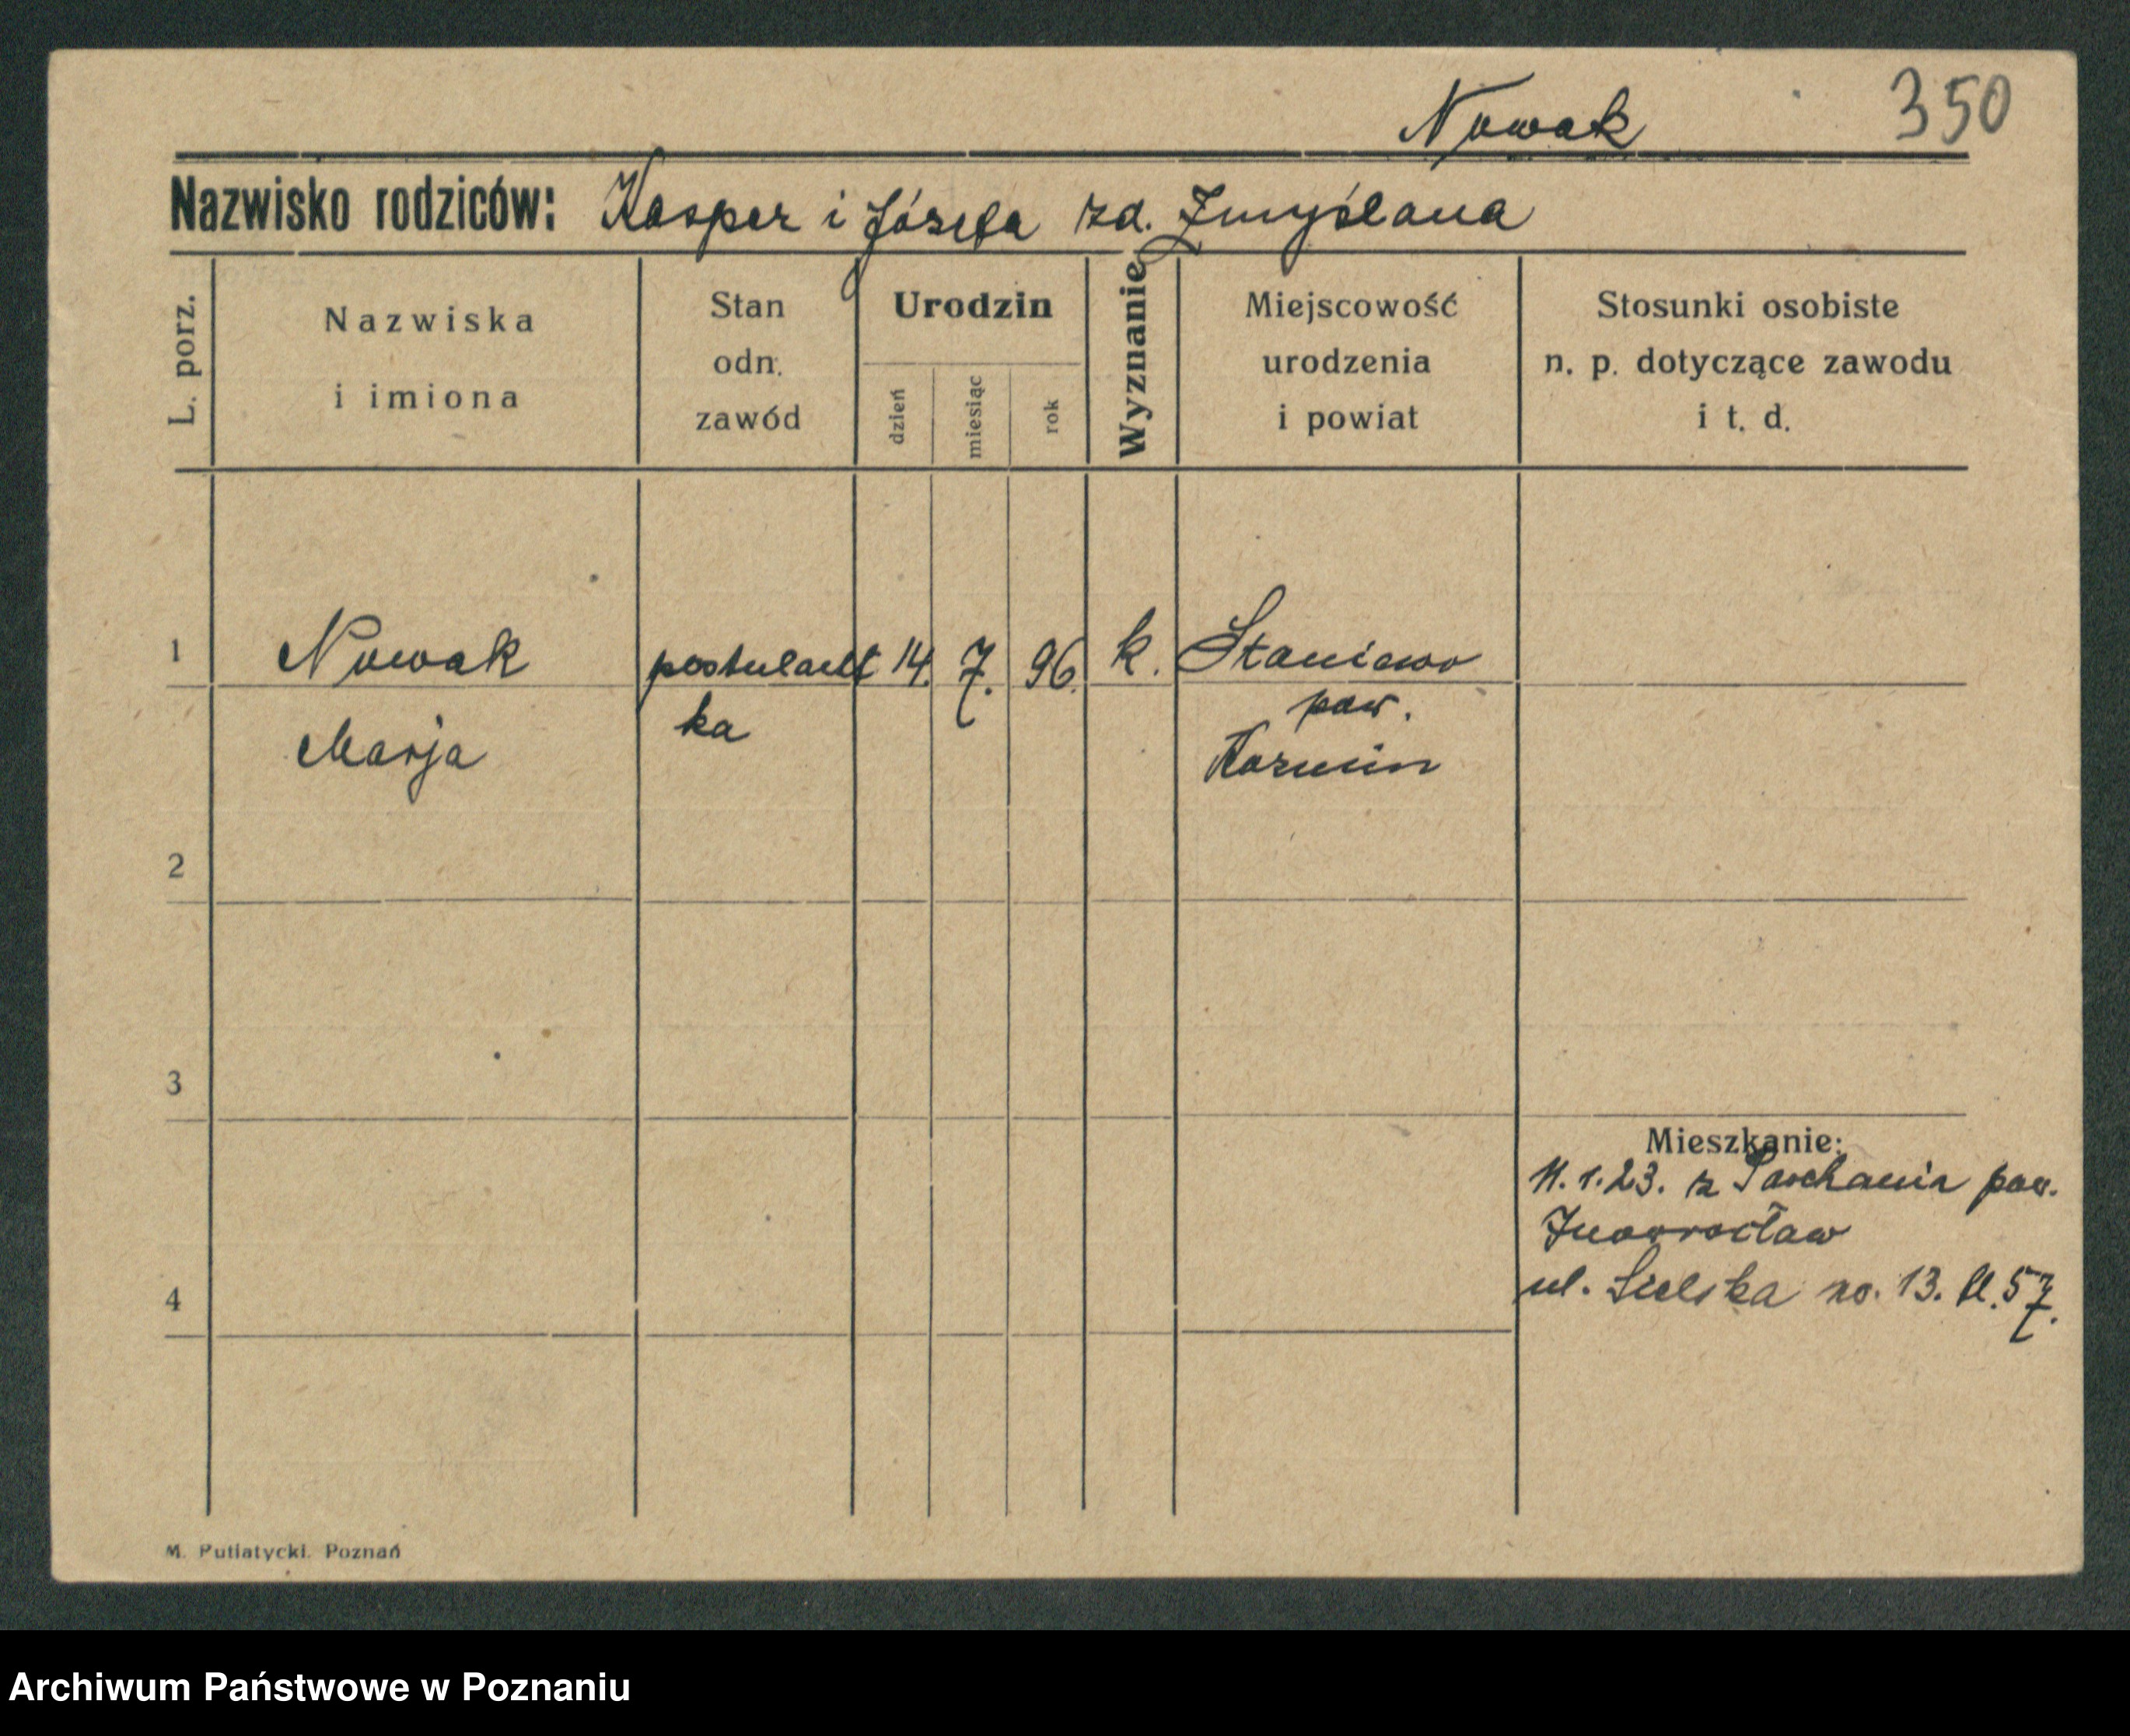 Nowak 350
Nazwisko rodziców: Kasper i Józefa zd. Zmyślana
L. porz.
Nazwiska
i imiona
Stan
odn.
zawód
Urodzin
dzień
miesiąc
rok
Wyznanie
Miejscowość
urodzenia
i powiat
Stosunki osobiste
n. p. dotyczące zawodu
i t. d.
1 Nowak postulant 14. 7. 96. k. Staniewo
ka pow.
Marja Kozmin
2
3
Mieszkanie:
11.1.23. z Parchania pow.
Inowrocław
4 ul. no. 13. 57.
M. Putiatycki. Poznań
Archiwum Państwowe w Poznaniu